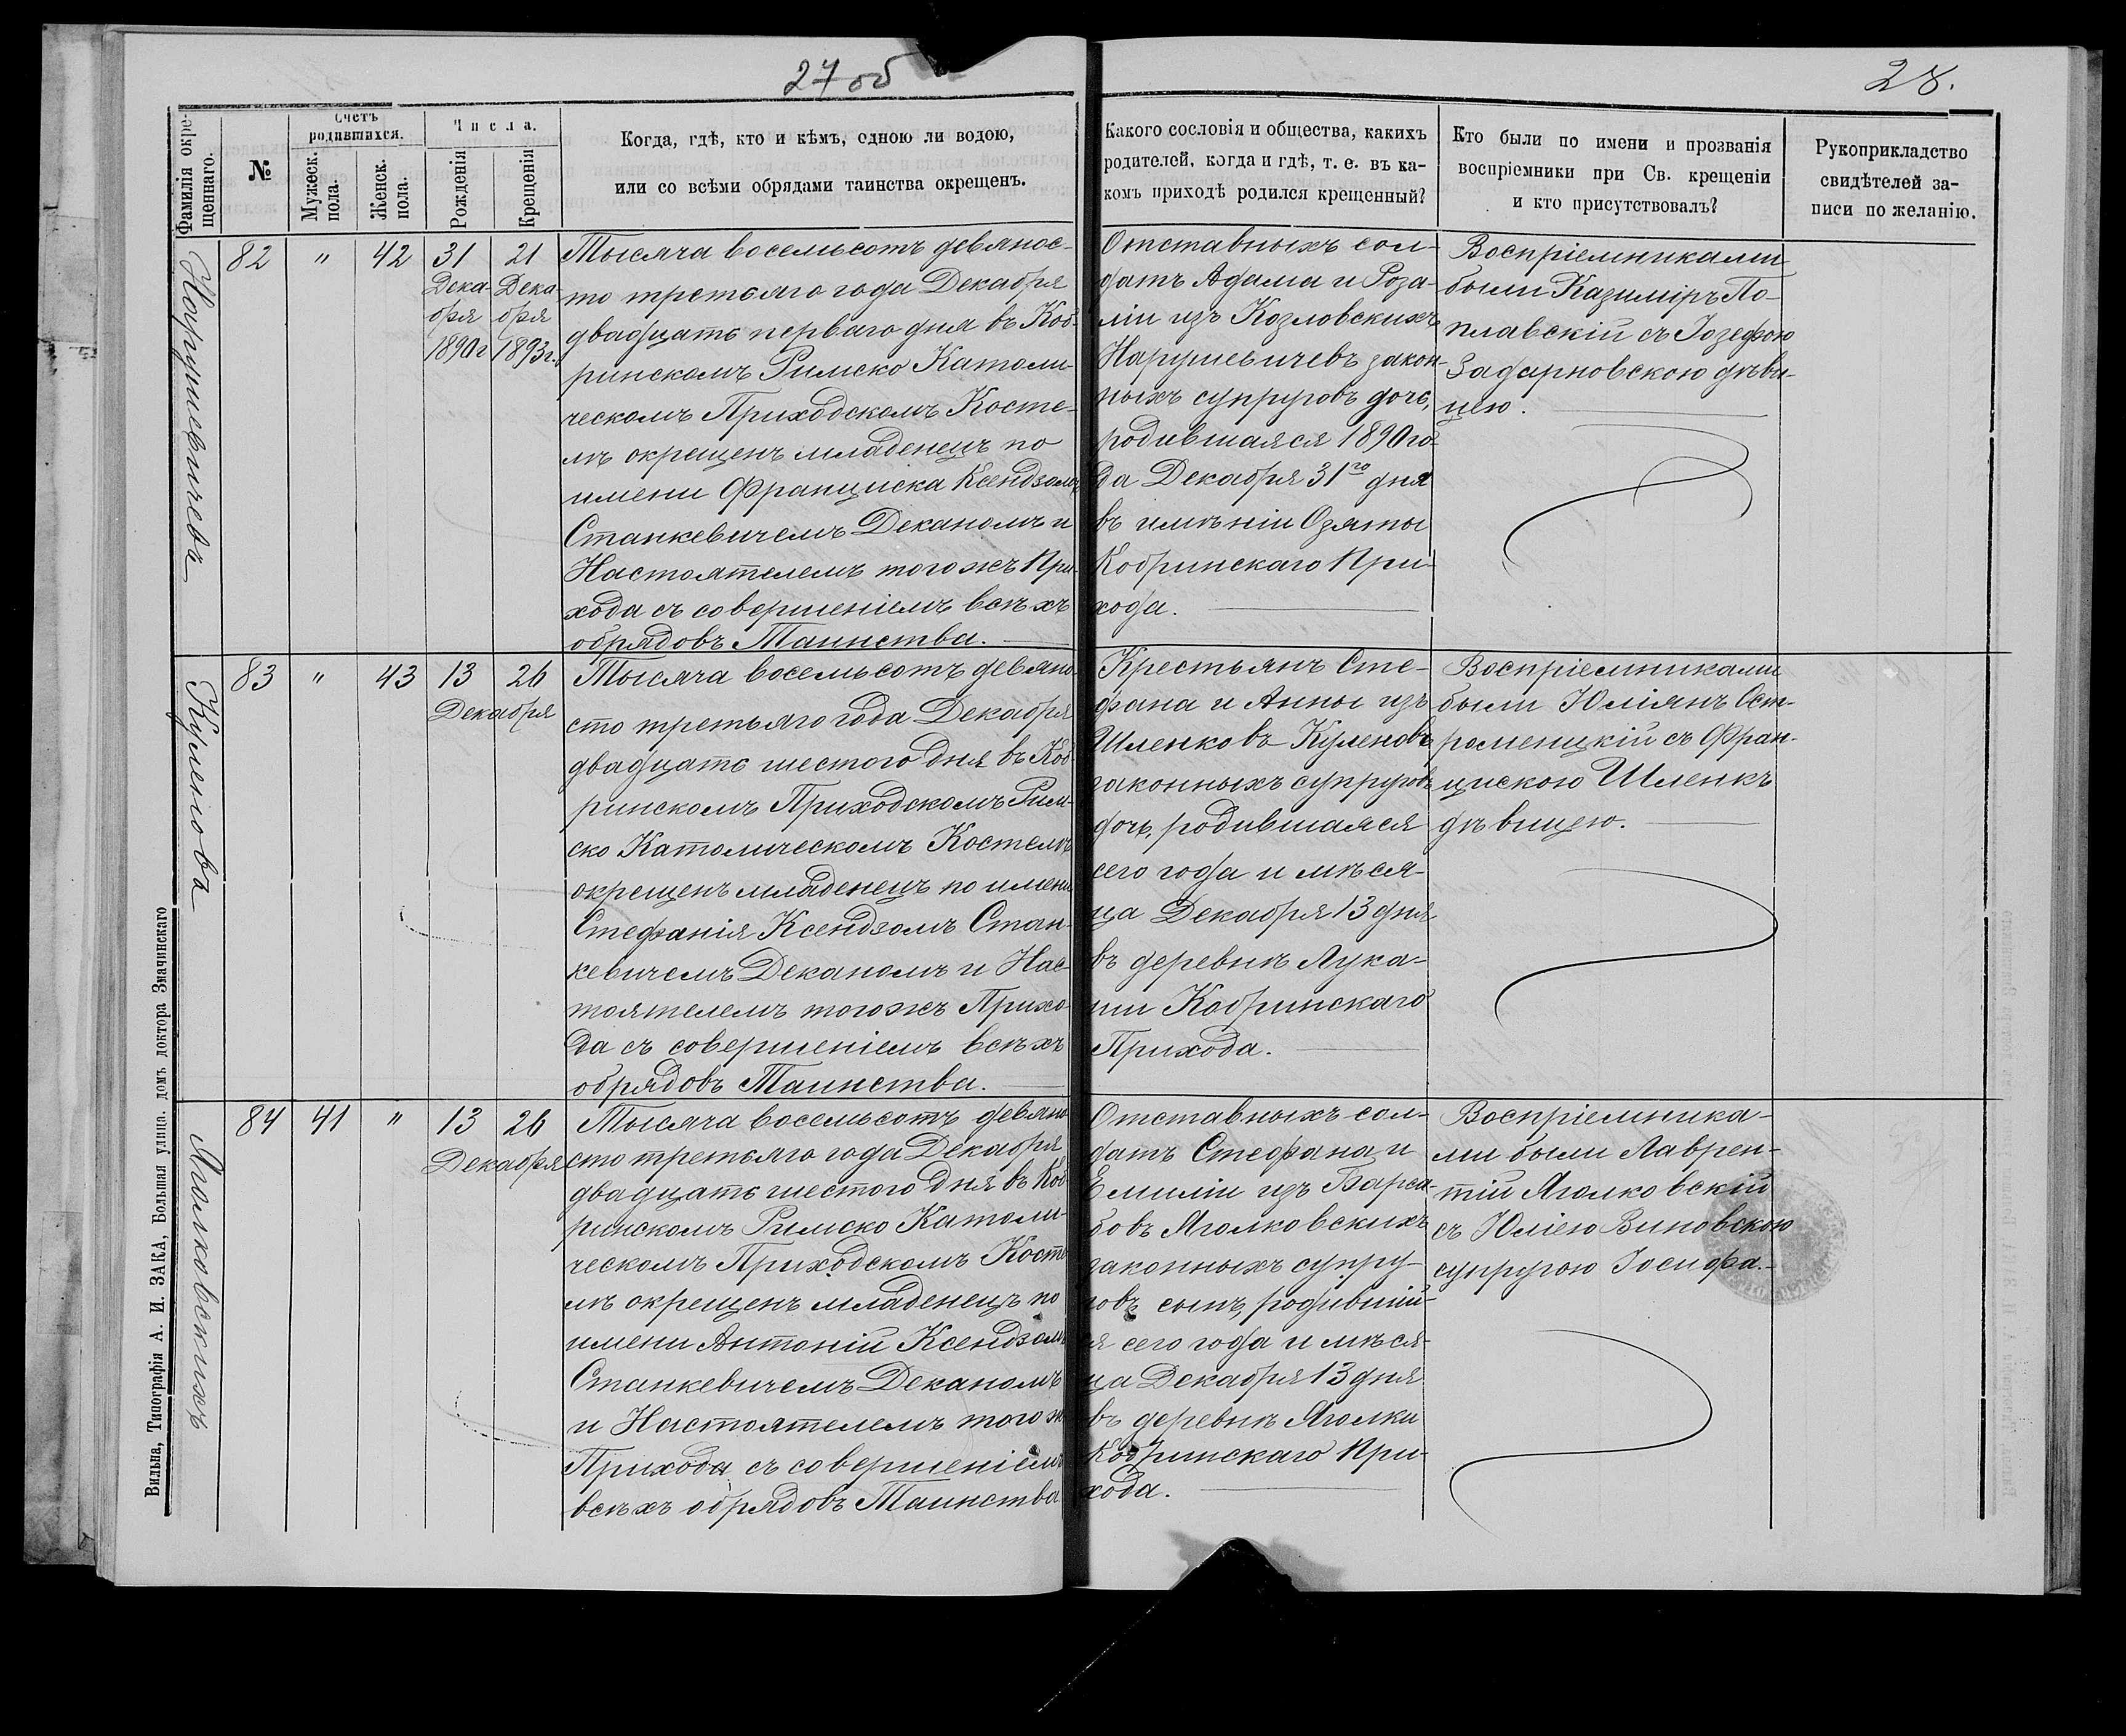 27 об
28.
Фамилія окре-
щеннаго.
№
Счетъ
родившихся.
Мужеск.
пола.
Женск.
пола.
Числа.
Рожденія
Крещенія
Когда, гдѣ, кто и кѣмъ, одною ли водою,
или со всѣми обрядами таинства окрещенъ.
Какого сословія и общества, какихъ
родителей, когда и гдѣ, т. е. въ ка-
комъ приходѣ родился крещенный?
Кто были по имени и прозванія
воспріемники при Св. крещеніи
и кто присутствовалъ?
Рукоприкладство
свидѣтелей за-
писи по желанію.
Нарушевичевъ
82 " 42 31 21
Дека- Дека-
бря бря
1890г 1893г.
Тысяча восемьсотъ девянос-
то третьяго года Декабря
двадцать перваго дня въ Коб-
ринскомъ Римско Католи-
ческомъ Приходскомъ Косте-
лѣ окрещенъ младенецъ по
имени Франциска Ксендзомъ
Станкевичемъ Деканомъ и
Настоятелемъ того жъ При-
хода съ совершеніемъ всѣхъ
обрядовъ Таинства.
Отставныхъ сол-
датъ Адама и Роза-
ліи изъ Козловскихъ
Нарушевичевъ закон-
ныхъ супруговъ дочь,
родившаяся 1890 го-
да Декабря 31го дня
въ имѣніи Озяты
Кобринскаго При-
хода.
Воспріемниками
были Казиміръ По-
плавскій съ Іозефою
Задарновскою дѣви-
цею.
Куленова
83 " 43 13 26
Декабря
Тысяча восемьсотъ девяно-
сто третьяго года Декабря
двадцать шестого дня въ Коб-
ринскомъ Приходскомъ Рим-
ско Католическомъ Костелѣ
окрещенъ младенецъ по имени
Стефанія Ксендзомъ Стан-
кевичемъ Деканомъ и Нас-
тоятелемъ того жъ Прихо-
да съ совершеніемъ всѣхъ
обрядовъ Таинства.
Крестьянъ Сте-
фана и Анны изъ
Шленковъ Куленовъ
законныхъ супруговъ
дочь, родившаяся
сего года и мѣся-
ца Декабря 13 дня
въ деревнѣ Лука-
ши Кобринскаго
Прихода.
Воспріемниками
были Юліянъ Ост-
роменцкій съ Фран-
цискою Шленкъ
дѣвицею.
Яголковскихъ
84 41 " 13 26
Декабря
Тысяча восемьсотъ девяно-
сто третьяго года Декабря
двадцать шестого дня въ Коб-
ринскомъ Римско Католи-
ческомъ Приходскомъ Косте-
лѣ окрещенъ младенецъ по
имени Антоній Ксендзомъ
Станкевичемъ Деканомъ
и Настоятелемъ того жъ
Прихода съ совершеніемъ
всѣхъ обрядовъ Таинства
Отставныхъ сол-
датъ Стефана и
Емиліи изъ Барсу-
бовъ Яголковскихъ
законныхъ супру-
говъ сынъ, родивший-
ся сего года и мѣся-
ца Декабря 13 дня
въ деревнѣ Яголки
Кобринскаго При-
хода.
Воспріемника-
ми были Лаврен-
тій Яголковскій
съ Юліею Виновскою
супругою Іосифа.
Вильна, Типографія А. И. ЗАКА, Большая улица. домъ доктора Змачинскаго